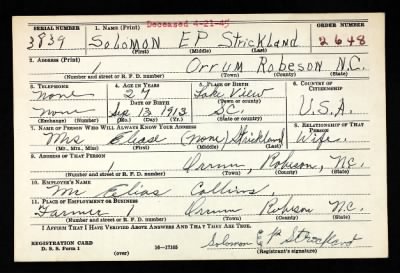 Deceased 4-21-45
SERIAL NUMBER 1. NAME (Print) ORDER NUMBER
3839 Solomon E P Strickland 2648
(First) (Middle) (Last)
2. ADDRESS (Print)
1 Orrum Robeson N.C.
(Number and street or R. F. D. number) (Town) (County) (State)
3. TELEPHONE 4. AGE IN YEARS 5. PLACE OF BIRTH 6. COUNTRY OF CITIZENSHIP
none 27 Lake View
DATE OF BIRTH (Town or county)
none Sep 13 1913 S.C. U.S.A.
(Exchange) (Number) (Mo.) (Day) (Yr.) (State or country)
7. NAME OF PERSON WHO WILL ALWAYS KNOW YOUR ADDRESS 8. RELATIONSHIP OF THAT PERSON
Mrs (none) Strickland Wife
(Mr., Mrs., Miss) (First) (Middle) (Last)
9. ADDRESS OF THAT PERSON
1 Orrum, Robison, N.C.
(Number and street or R. F. D. number) (Town) (County) (State)
10. EMPLOYER'S NAME
Mr Elias Collins.
11. PLACE OF EMPLOYMENT OR BUSINESS
Farmer 1 Orrum Robison N.C.
(Number and street or R. F. D. number) (Town) (County) (State)
I AFFIRM THAT I HAVE VERIFIED ABOVE ANSWERS AND THAT THEY ARE TRUE.
Solomon E P Strickland
REGISTRATION CARD
D. S. S. Form 1 (over) 16—17105 (Registrant's signature)